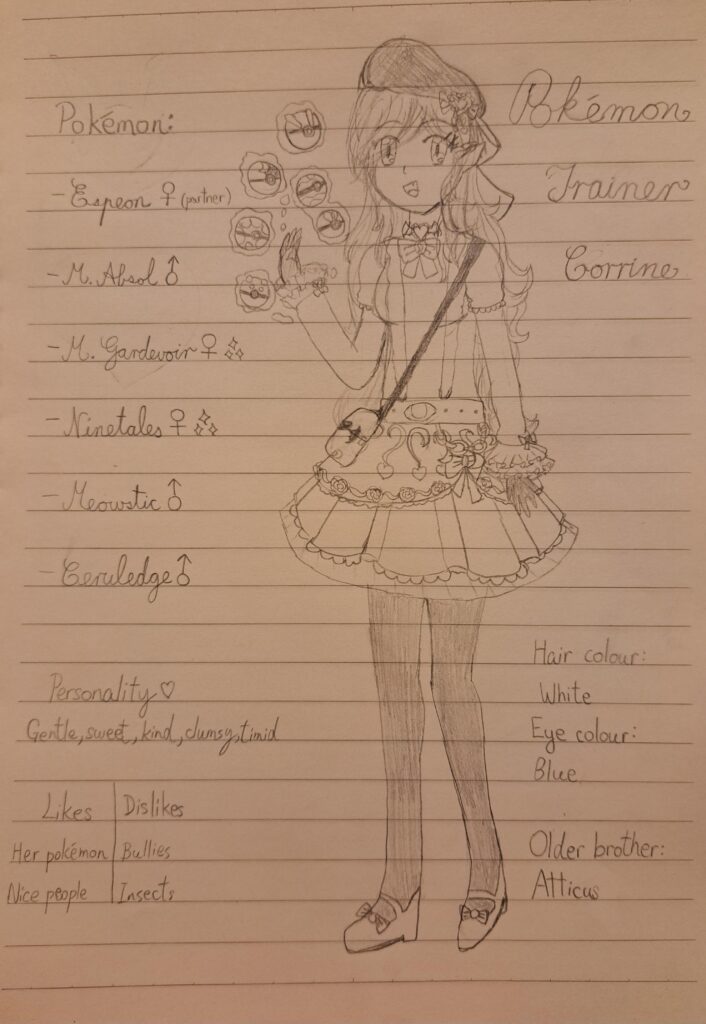 Pokémon
Trainer
Corrine
Pokémon:
- Espeon ♀ (partner)
- M. Absol ♂
- M. Gardevoir ♀
- Ninetales ♀
- Meowstic ♂
- Ceruledge ♂
Personality ♡
Gentle, sweet, kind, clumsy, timid
Likes Dislikes
Her pokémon Bullies
Nice people Insects
Hair colour:
White
Eye colour:
Blue
Older brother:
Atticus